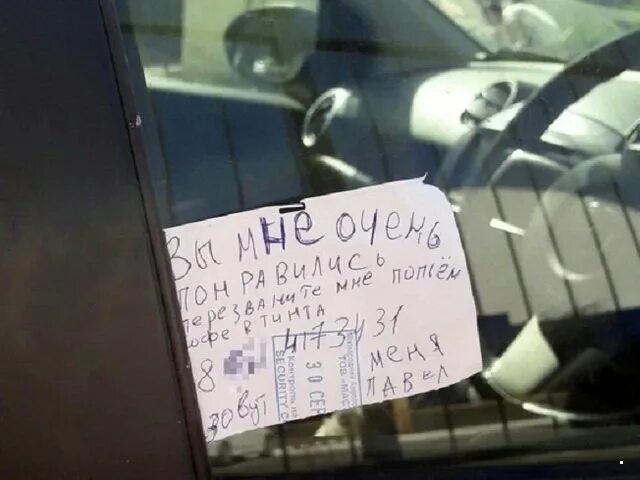 Вы мне очень
понравились
перезваните мне попём
кофе в тинта
8 4173431
зовут меня
Павел
Контроль на
SECURITY C
30 СЕР
ТОВ «МАС